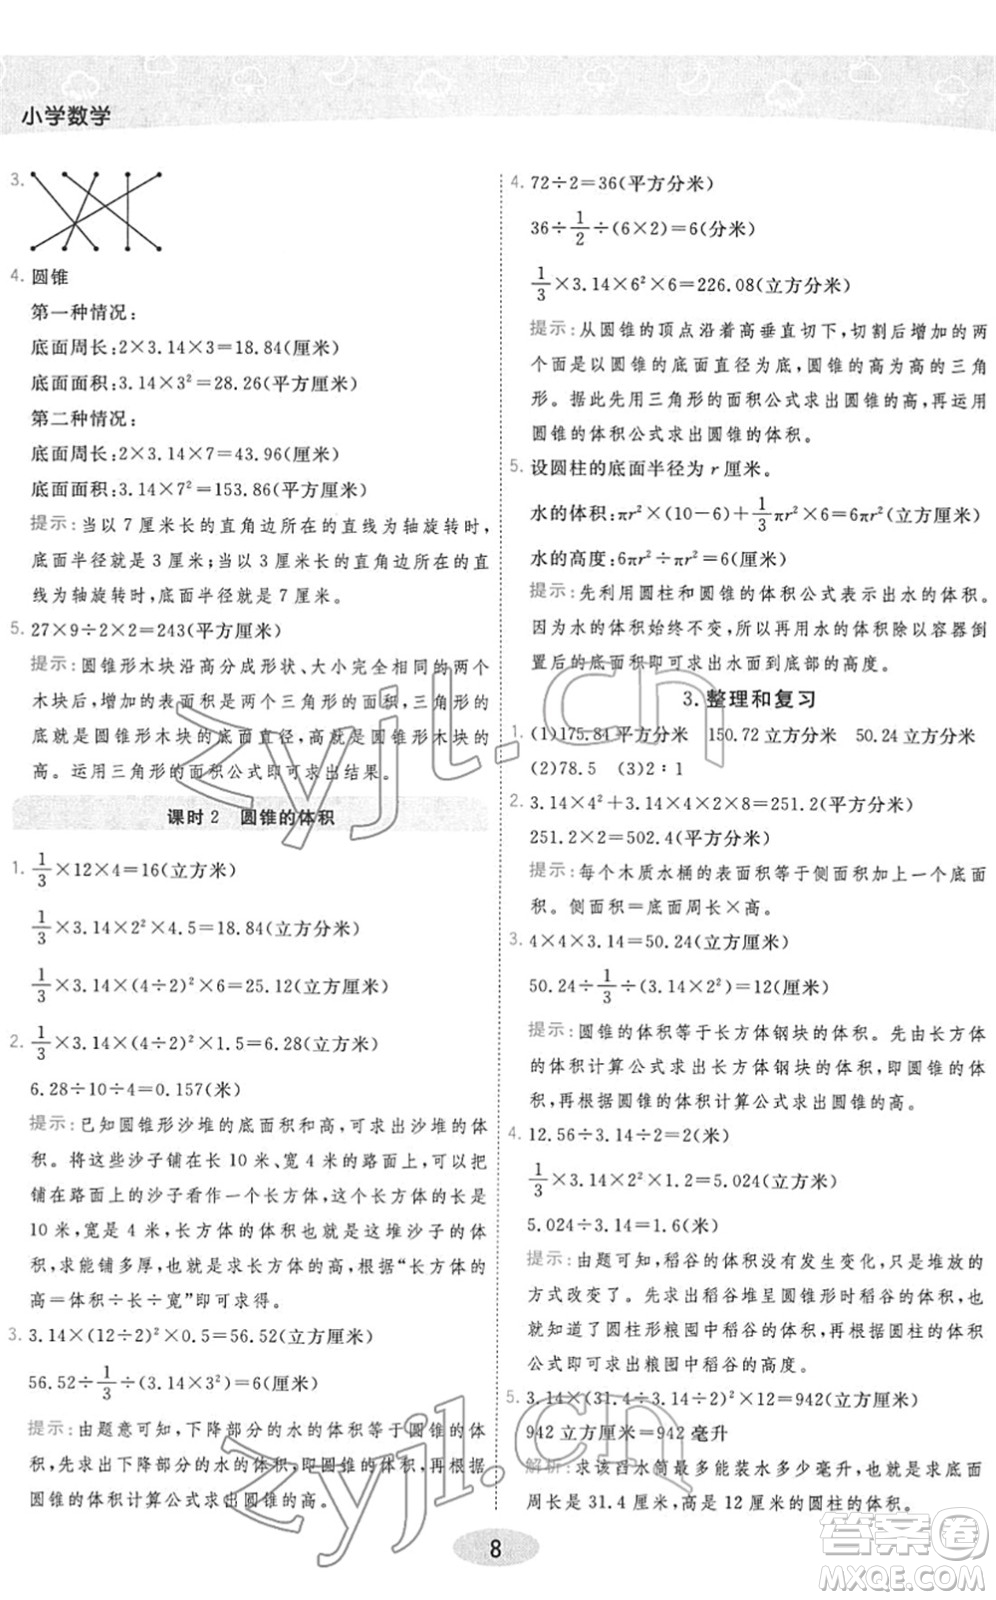 小学数学
3.
4. 圆锥
第一种情况：
底面周长：2×3.14×3＝18.84(厘米)
底面面积：3.14×3²＝28.26(平方厘米)
第二种情况：
底面周长：2×3.14×7＝43.96(厘米)
底面面积：3.14×7²＝153.86(平方厘米)
提示：当以 7 厘米长的直角边所在的直线为轴旋转时，
底面半径就是 3 厘米；当以 3 厘米长的直角边所在的直
线为轴旋转时，底面半径就是 7 厘米。
5. 27×9÷2×2＝243(平方厘米)
提示：圆锥形木块沿高分成形状、大小完全相同的两个
木块后，增加的表面积是两个三角形的面积，三角形的
底就是圆锥形木块的底面直径，高就是圆锥形木块的
高。运用三角形的面积公式即可求出结果。
课时 2　圆锥的体积
1. 1/3×12×4＝16(立方米)
1/3×3.14×2²×4.5＝18.84(立方分米)
1/3×3.14×(4÷2)²×6＝25.12(立方厘米)
2. 1/3×3.14×(4÷2)²×1.5＝6.28(立方米)
6.28÷10÷4＝0.157(米)
提示：已知圆锥形沙堆的底面积和高，可求出沙堆的体
积。将这些沙子铺在长 10 米、宽 4 米的路面上，可以把
铺在路面上的沙子看作一个长方体，这个长方体的长是
10 米，宽是 4 米，长方体的体积就是这堆沙子的体积。
求能铺多厚，也就是求长方体的高，根据“长方体的
高＝体积÷长÷宽”即可求得。
3. 3.14×(12÷2)²×0.5＝56.52(立方厘米)
56.52÷1/3÷(3.14×3²)＝6(厘米)
提示：由题意可知，下降部分的水的体积就是圆锥的体
积，先求出下降部分的水的体积，即圆锥的体积，再根据
圆锥的体积计算公式求出圆锥的高。
4. 72÷2＝36(平方分米)
36÷1/2÷(6×2)＝6(分米)
1/3×3.14×6²×6＝226.08(立方分米)
提示：从圆锥的顶点沿着高垂直切下，切割后增加的两
个面是以圆锥的底面直径为底，圆锥的高为高的三角
形。据此先用三角形的面积公式求出圆锥的高，再运用
圆锥的体积公式求出圆锥的体积。
5. 设圆柱的底面半径为 r 厘米。
水的体积：πr²×(10－6)＋1/3πr²×6＝6πr²(立方厘米)
水的高度：6πr²÷πr²＝6(厘米)
提示：先利用圆柱和圆锥的体积公式表示出水的体积。
因为水的体积始终不变，所以再用水的体积除以容器倒
置后的底面积即可求出水面到底部的高度。
3. 整理和复习
1. (1)175.84 平方分米　150.72 立方分米　50.24 立方分米
(2)78.5　(3)2∶1
2. 3.14×4²＋3.14×4×2×8＝251.2(平方分米)
251.2×2＝502.4(平方分米)
提示：每个木质水桶的表面积等于侧面积加上一个底面
积。侧面积＝底面周长×高。
3. 4×4×3.14＝50.24(立方厘米)
50.24÷1/3÷(3.14×2²)＝12(厘米)
提示：圆锥的体积等于长方体钢块的体积。先由长方体
的体积计算公式求出长方体钢块的体积，即圆锥的体
积，再根据圆锥的体积计算公式求出圆锥的高。
4. 12.56÷3.14÷2＝2(米)
1/3×3.14×2²×1.2＝5.024(立方米)
5.024÷3.14＝1.6(米)
提示：由题可知，稻谷的体积没有发生变化，只是堆放的
方式改变了。先求出稻谷堆呈圆锥形时稻谷的体积，也
就知道了圆柱形粮囤中稻谷的体积，再根据圆柱的体积
公式即可求出粮囤中稻谷的高度。
5. 3.14×(31.4÷3.14÷2)²×12＝942(立方厘米)
942 立方厘米＝942 毫升
解析：求该舀水筒最多能装水多少毫升，也就是求底面
周长是 31.4 厘米，高是 12 厘米的圆柱的体积。
8
zyjl.cn
zyjl.cn
答案圈
MXQE.COM